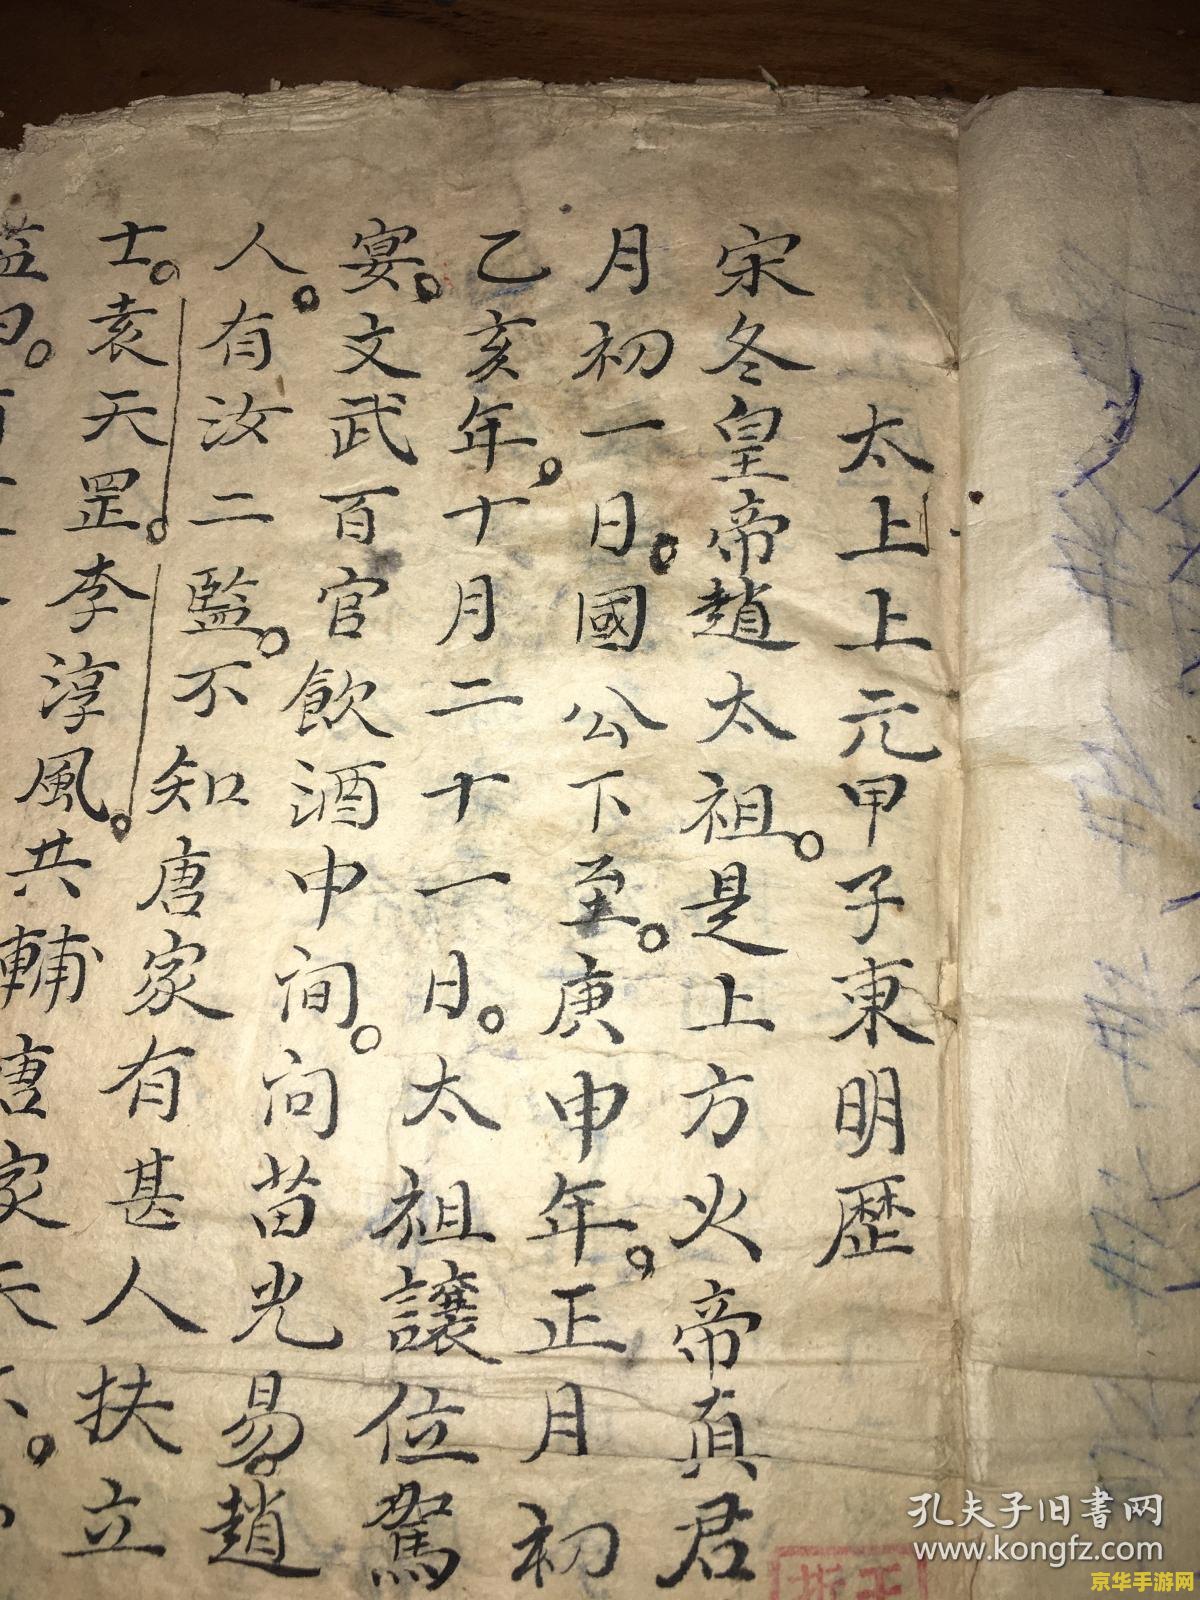 太上上元甲子東明歷
宋冬皇帝趙太祖。是上方火帝真君
月初一日。國公下至。庚申年。正月初
乙亥年。十月二十一日。太祖讓位駕
宴。文武百官飲酒中间。问苗光易。趙
人。有汝二監。不知唐家有甚人扶立
士。袁天罡。李淳風。共輔唐家天
孔夫子旧书网
www.kongfz.com
京华手游网